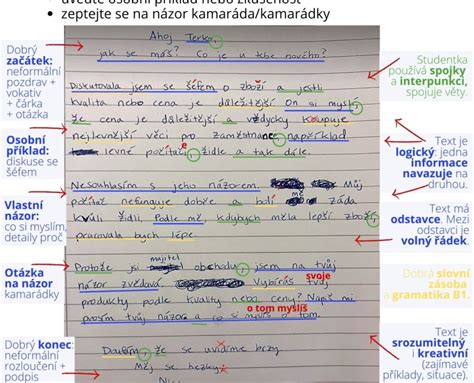 uveďte osobní příklad nebo zkušenost
• zeptejte se na názor kamaráda/kamarádky
Ahoj Terko,
jak se máš? Co je u tebe nového?
Diskutovala jsem se šéfem o zboží a jestli
kvalita nebo cena je důležitější. On si myslí,
že cena je důležitější a vždycky kupuje
nejlevnější věci pro zaměstnance, například
levné počítače, židle a tak dále.
Nesouhlasím s jeho názorem. Můj
počítač nefunguje dobře a bolí mě záda
kvůli židli. Podle mě, kdybych měla lepší zboží,
pracovala bych lépe.
Protože jsi majitel obchodu, jsem na tvůj
názor zvědavá. Vybíráš svoje
produkty podle kvality nebo ceny? Napiš mi
prosím tvůj názor a co si myslíš o tom.
o tom myslíš
Doufám, že se uvidíme brzy.
Měj se hezky
Dobrý
začátek:
neformální
pozdrav +
vokativ
+ čárka
+ otázka
Osobní
příklad:
diskuse se
šéfem
Vlastní
názor:
co si myslím,
detaily proč
Otázka
na názor
kamarádky
Dobrý konec:
neformální
rozloučení +
podpis
Studentka
používá spojky
a interpunkci,
spojuje věty.
Text je
logický: jedna
informace
navazuje na
druhou.
Text má
odstavce. Mezi
odstavci je
volný řádek.
Dobrá slovní
zásoba
a gramatika B1.
Text je
srozumitelný
i kreativní
(zajímavé
příklady, situace).